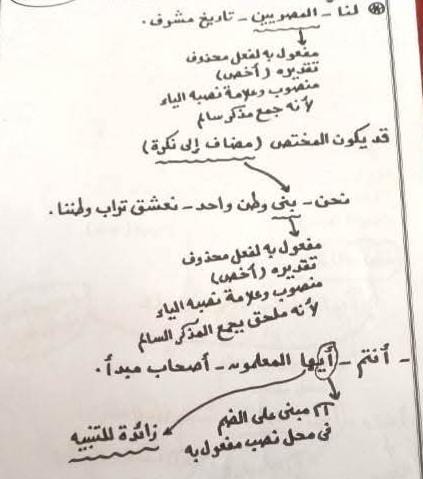 لنا - المصريين - تاريخ مشرف.
مفعول به لفعل محذوف
تقديره (أخص)
منصوب وعلامة نصبه الياء
لأنه جمع مذكر سالم
قد يكون المختص (مضاف إلى نكرة)
نحن - بنى وطن واحد - نعشق تراب وطننا.
مفعول به لفعل محذوف
تقديره (أخص)
منصوب وعلامة نصبه الياء
لأنه ملحق بجمع المذكر السالم
- أنتم - أيها المعلمون - أصحاب مبدأ.
مبنى على الضم
فى محل نصب مفعول به
زائدة للتنبيه